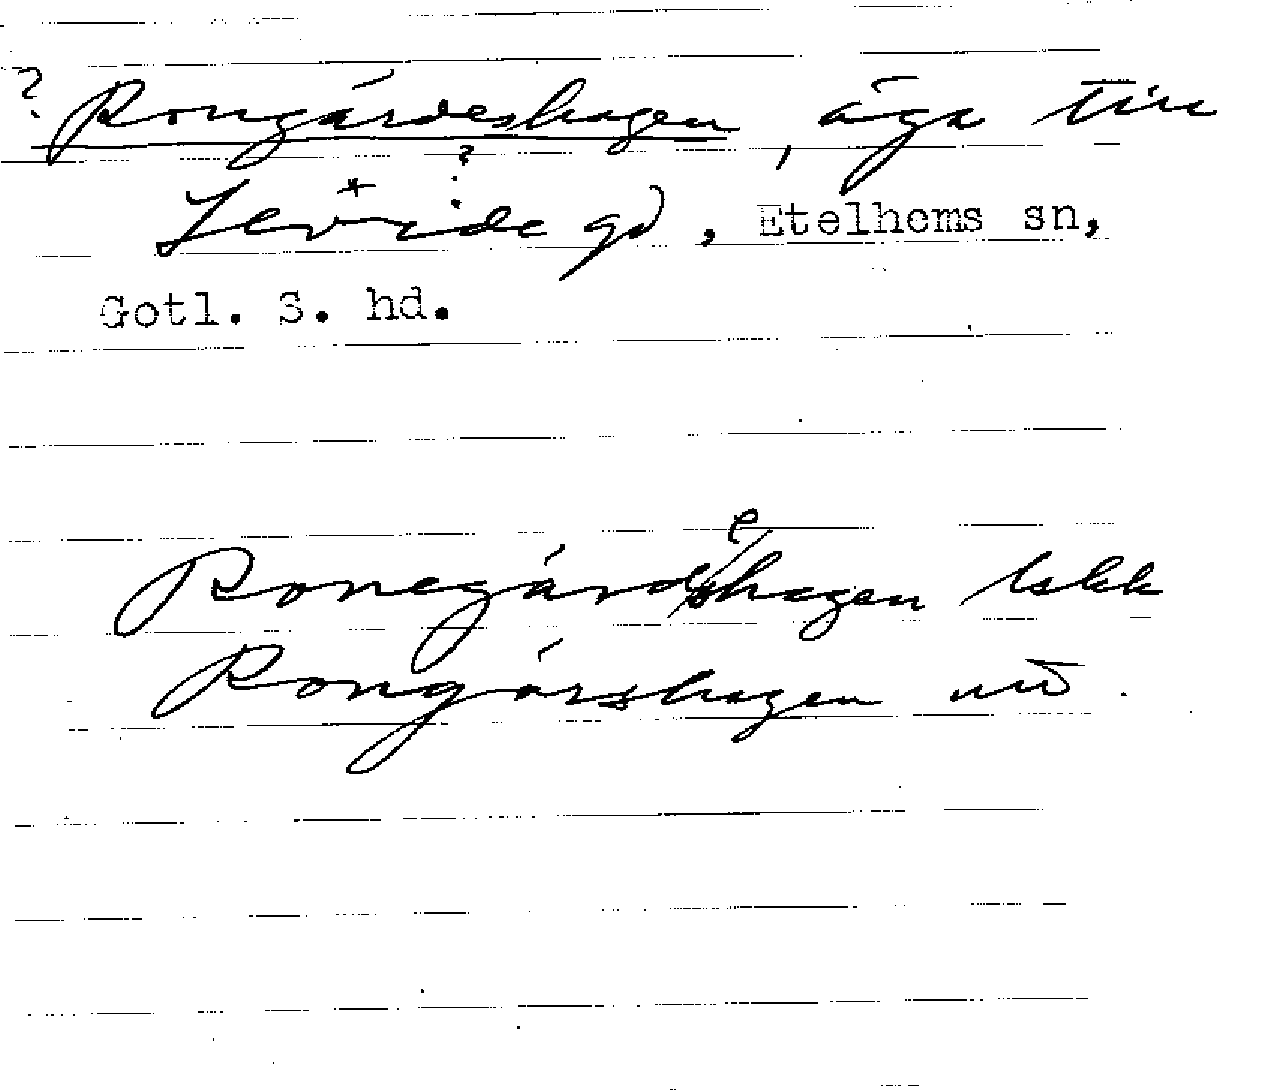 ? Rongårdeshagen, äga till
Levide gd, Etelhems sn,
Gotl. S. hd.
Ronegårdeshagen
Rongårshagen